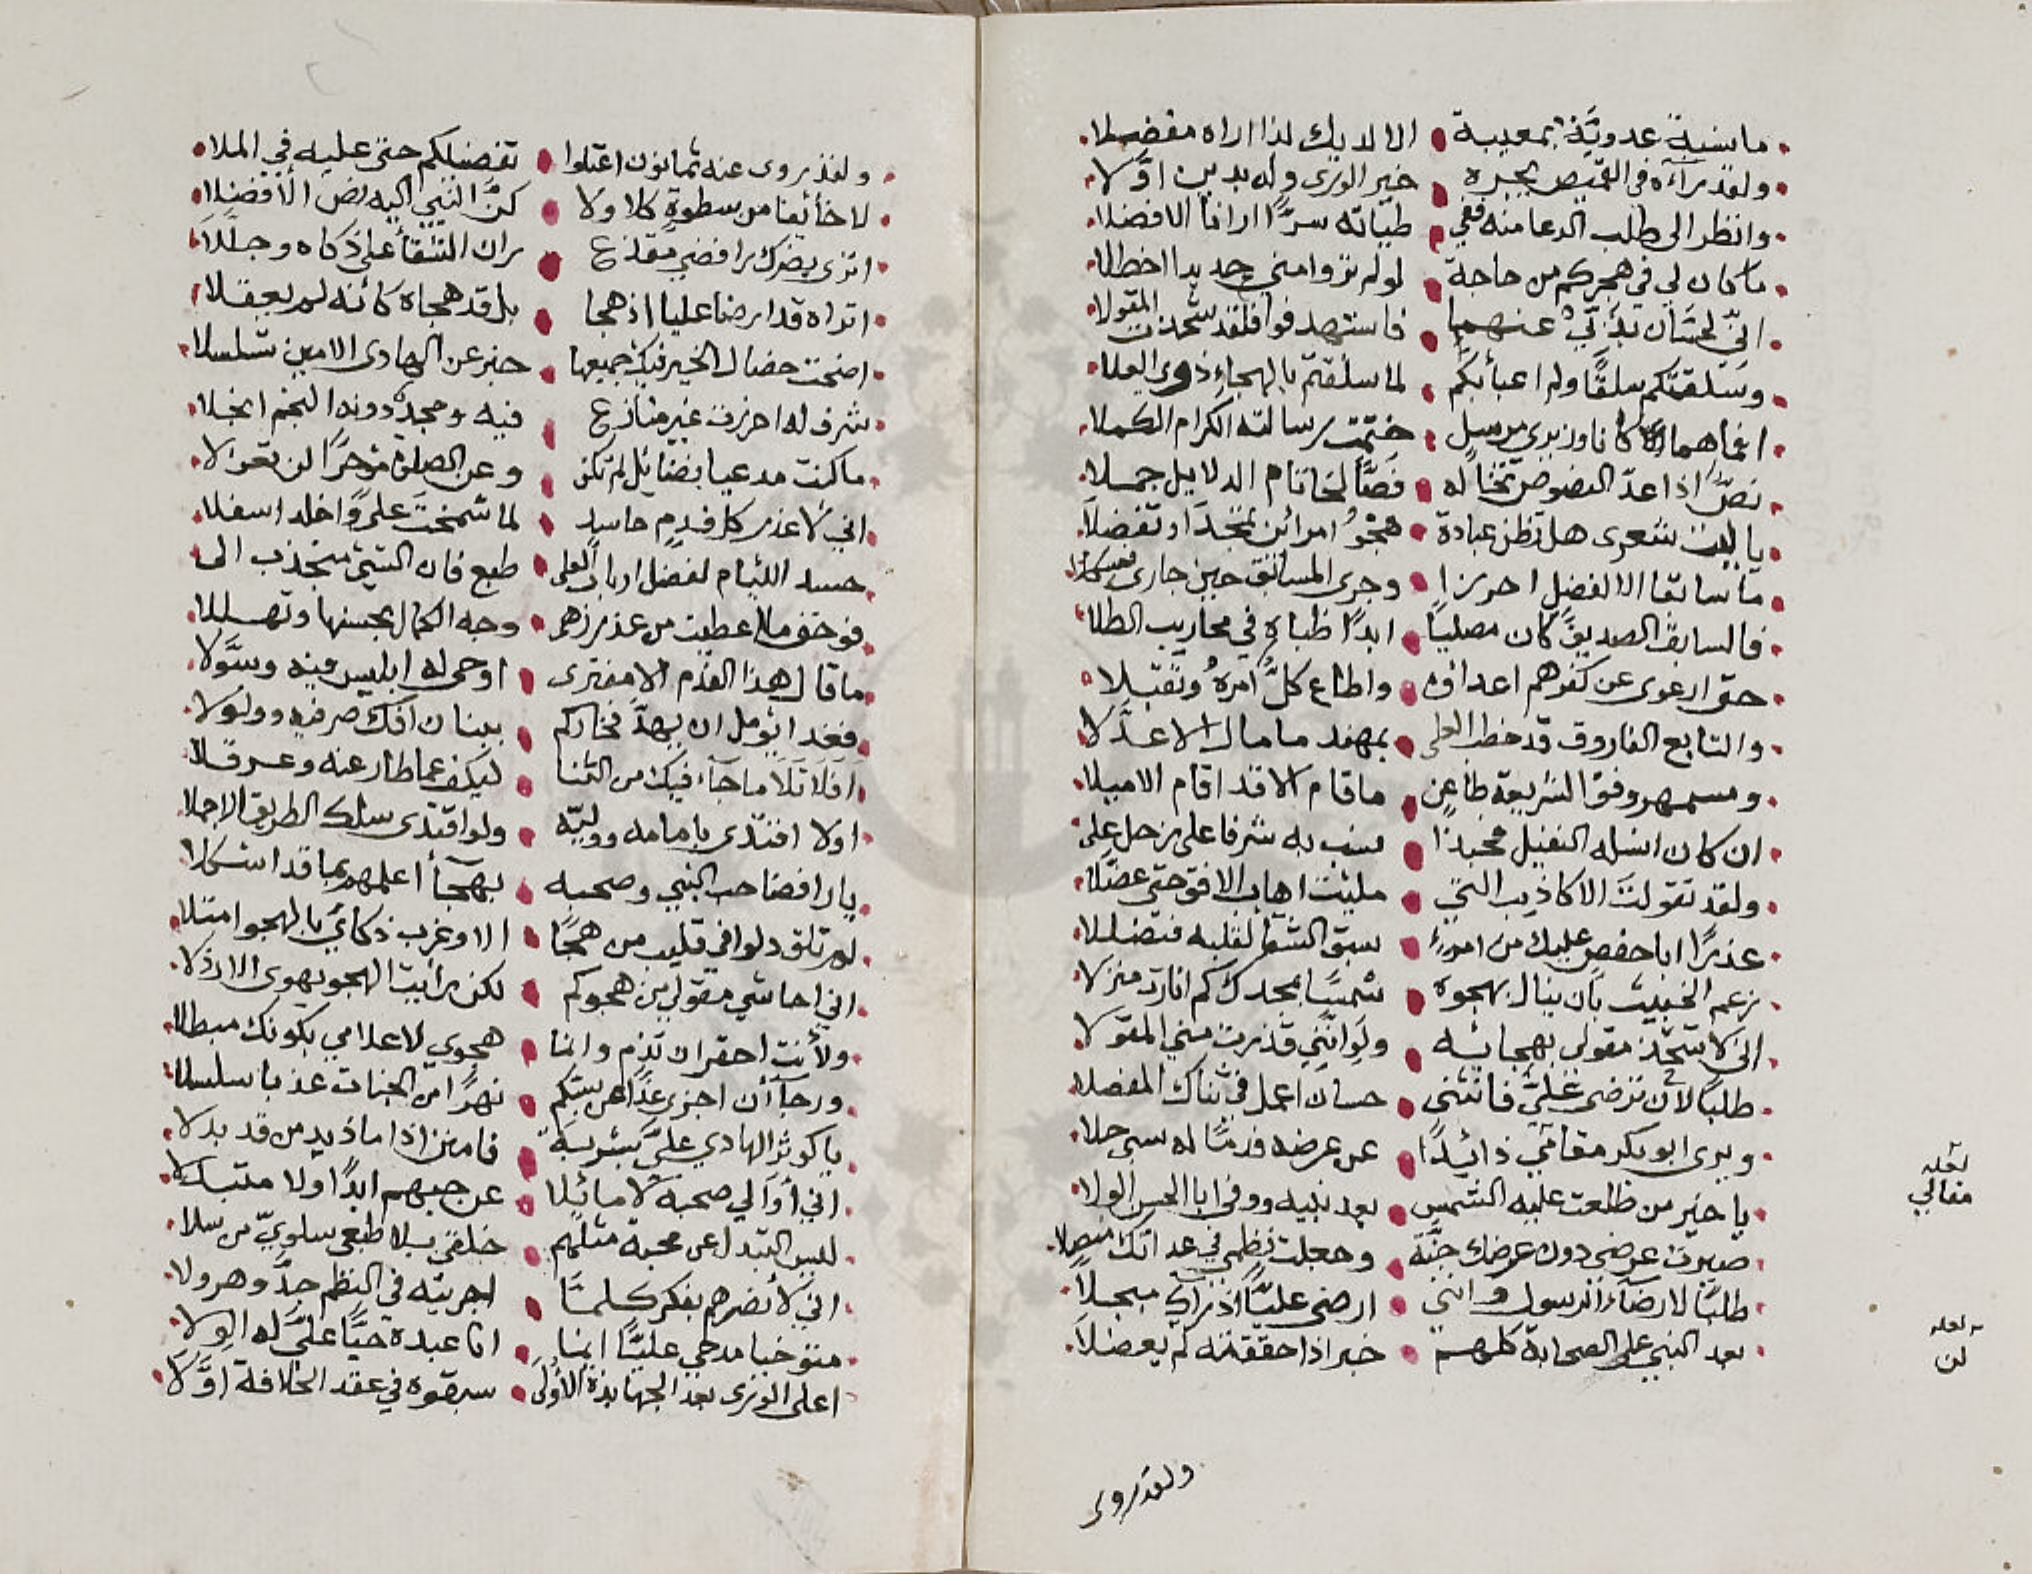 ما نسبة عدوية بمعيبة الا لديك لذا اراه مفضلا
ولقد رآءه في القميص يجره خير الورى وله بدين اولا
وانظر الى طلب الدعا منه ففي طياته سرا ارانا الافضلا
ما كان لي في هجركم من حاجة لو لم تروا مني جديدا اخطلا
اني لحسان يذب عنهما فاستهدفوا فلقد شحذت المقولا
وسلقتكم سلقا ولم اعبأ بكم لما سلقتم بالهجاء ذوى العلا
انما هما كانا وزيرى مرسل ختمت رسالته الكرام الكملا
نص اذا عد النصوص تخاله فصا لخاتام الدلايل جملا
يا ليت شعرى هل تظن عبادة هجو امرائن تمجدا وتفضلا
ما سابقا الا لفضل احرزا وجرى المسابق حين جارى
فالسابق الصديق كان مصليا ابدا ظباه في محاريب الطلا
حتى ارعوى عن كفرهم اعداؤه واطاع كل امره وتقبلا
والتابع الفاروق قد خط العلى بمهند ما مال الا عدلا
ومسمهر وفق الشريعة طاعن ما قام الا قد اقام الاميلا
ان كان انسله النفيل محبذا نسب به شرفا على زحل على
ولقد تقولت الاكاذيب التي ملئت اهاب الافق حتى عضلا
عذرا ابا حفص عليك من امرء سبق الشقا لقلبه فتضللا
زعم الخبيث بان ينال بهجوه شمسا بمجدك كم انارت منزلا
اني لاشحذ مقولى بهجائه ولو انني قذرت مني المقولا
طلبا لأن ترضى علي فانثنى حسان اعمل في ثناك المفصلا
ويرى ابو بكر مقامي ذائدا عن عرضه قدما له سبى حلا
يا خير من طلعت عليه الشمس بعد نبيه ووفى ابا الحسن الولا
صيرت عرضى دون عرضك جنة وجعلت نظمي في عداتك منصلا
طلبا لارضاء الرسول وانني ارضى عليا اذ اراك مبجلا
بعد النبي على الصحابة كلهم خبر اذا حققته لم يعضلا
لعله
مقالي
لعله
لن
ولقد روى
ولقد روى عنه ثمانون اعتلوا تفضيلكم حتى عليه في الملا
لا خائفا من سطوة كلا ولا كن النبي اليه نص الافضلا
اترى يضرك رافضي مقذع ران الشقأ على ذكاه وجللا
اتراه قد ارضا عليا اذ هجا بل قد هجاه كأنه لم يعقلا
اضحت خصال الخير فيك جميعها خبر عن الهادى الامين تسلسلا
شرف له احرزت غير منازع فيه ومجد دونه النجم انجلا
ما كنت مدعيا بفضائل لم تكن وعن الصلوة مؤخرا لن تعزلا
اني لأعذر كل فدم حاسد لما شمخت على واخلد اسفلا
حسد اللئام لفضل ارباب العلى طبع فان الشئ منجذب الى
فوحق ما اعطيت من عذر زهى وجه الكمال بحسنها وتهللا
ما قال هجذا الفدم الا مفترى اوحى له ابليس فيه وسولا
فغدا يؤمل ان يهد فخاركم ببنان افك صرفه وولولا
افلا تلا ما جاء فيك من الثنا ليكف عما طار عنه وعرقلا
اولا اقتدى بامامه ووليه ولو اقتدى سلك الطريق الاجملا
يا رافضا حب النبي وصحبه بهجأ أعلمهم بما قد اشكلا
لم تلق دلوا في قليب من هجا الا وغرب ذكائي بالهجو امتلا
اني احاشي مقولي من هجوكم لكن رأيت الهجو يهوى الارذلا
ولأنت احقر ان تذم وانما هجوي لاعلامي بكونك مبطلا
ورجاء أن اجزى غدا عن سبكم نهرا من الجنات عذبا سلسلا
يا كوثر الهادي علي بشربة فامنن اذا ما ذيد من قد بدلا
اني أوالي صحبه لا مائلا عن حبهم ابدا ولا متبدلا
ليس التبدل عن محبة مثلهم خلقي بلا طبعي سلوي من سلا
اني لأنضرهم بفكر كلما اجريته في النظم جد وهرولا
متوخيا مدحي عليا ايما انا عبده حيا علي له الولا
اعلى الورى بعد الجهابذة الأولى سبقوه في عقد الخلافة اولا